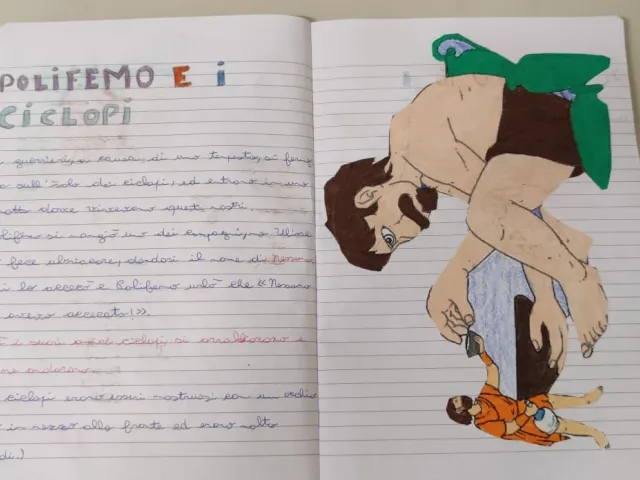 POLIFEMO E i
CICLOPI
guerrieri, a causa, di una tempesta, si ferma
sull'isola dei ciclopi, ed entrano in una
dove vivevano questi mostri.
si mangiò uno dei compagni, ma Ulisse
fece ubriacare, dandosi il nome di Nessuno
lo accecò e Polifemo urlò che «Nessuno
aveva accecato!».
i suoi amici ciclopi, si arrabbiarono e
ne andarono.
ciclopi erano esseri mostruosi con un occhio
in mezzo alla fronte ed erano molto
di.)